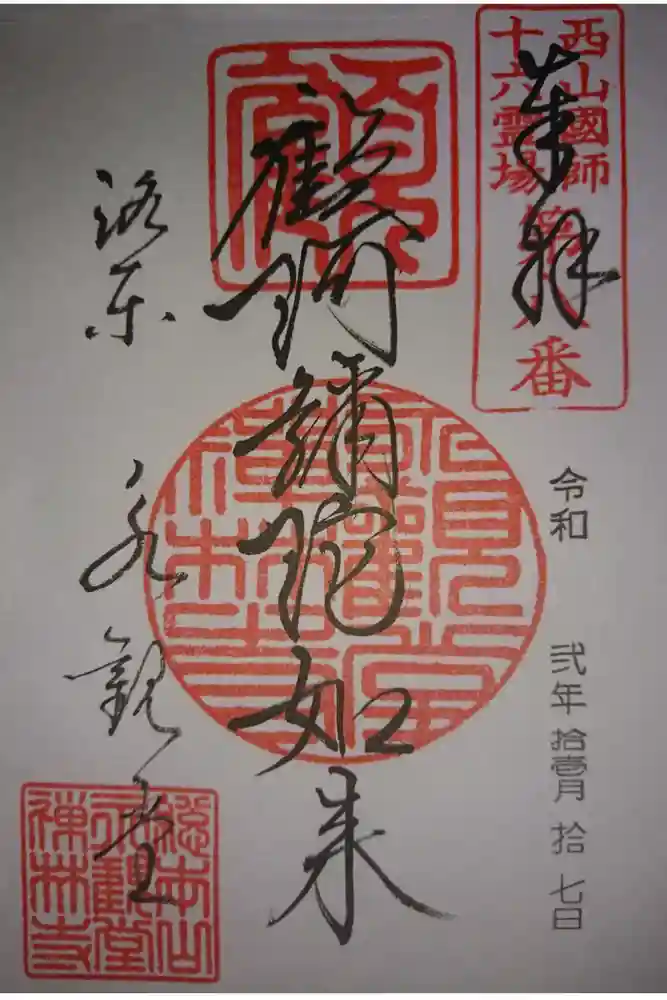 奉拝
西山國師
十六霊場
第八番
令和 弐年 拾壹月 拾七日
顧阿彌陀如来
洛東 永観堂
永觀堂
禅林寺
総本山
永觀堂
禅林寺